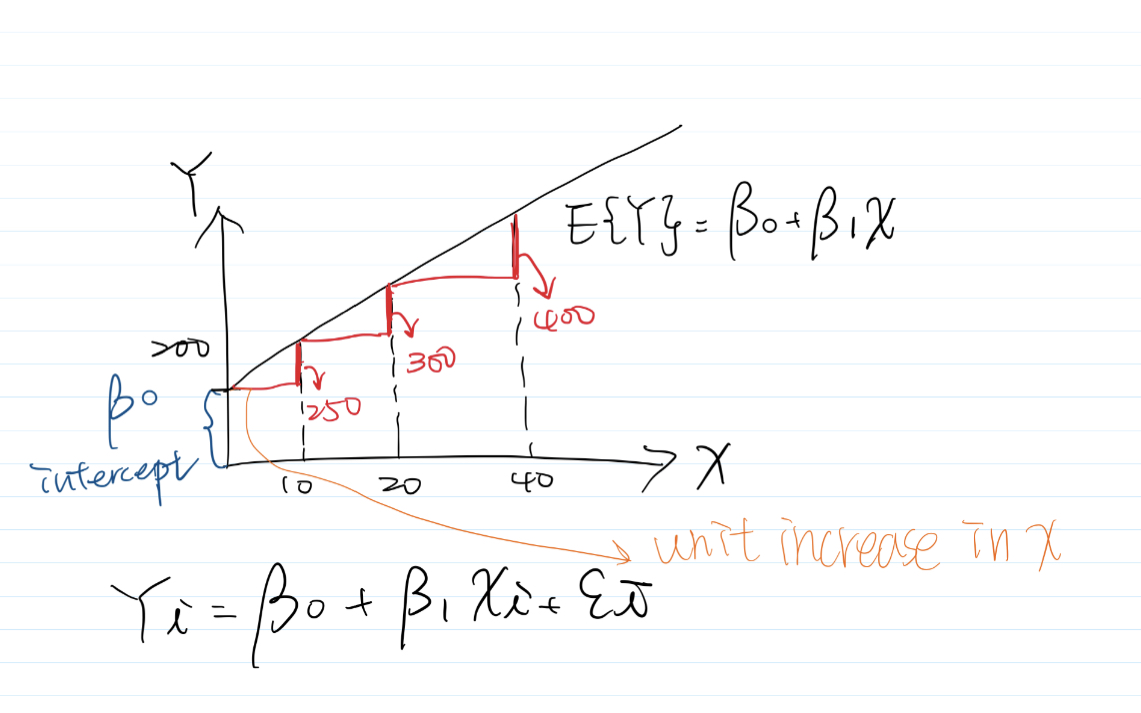 Y
E{Y} = β0 + β1X
200
400
300
β0
250
intercept
X
10 20 40
unit increase in X
Yi = β0 + β1 Xi + εi